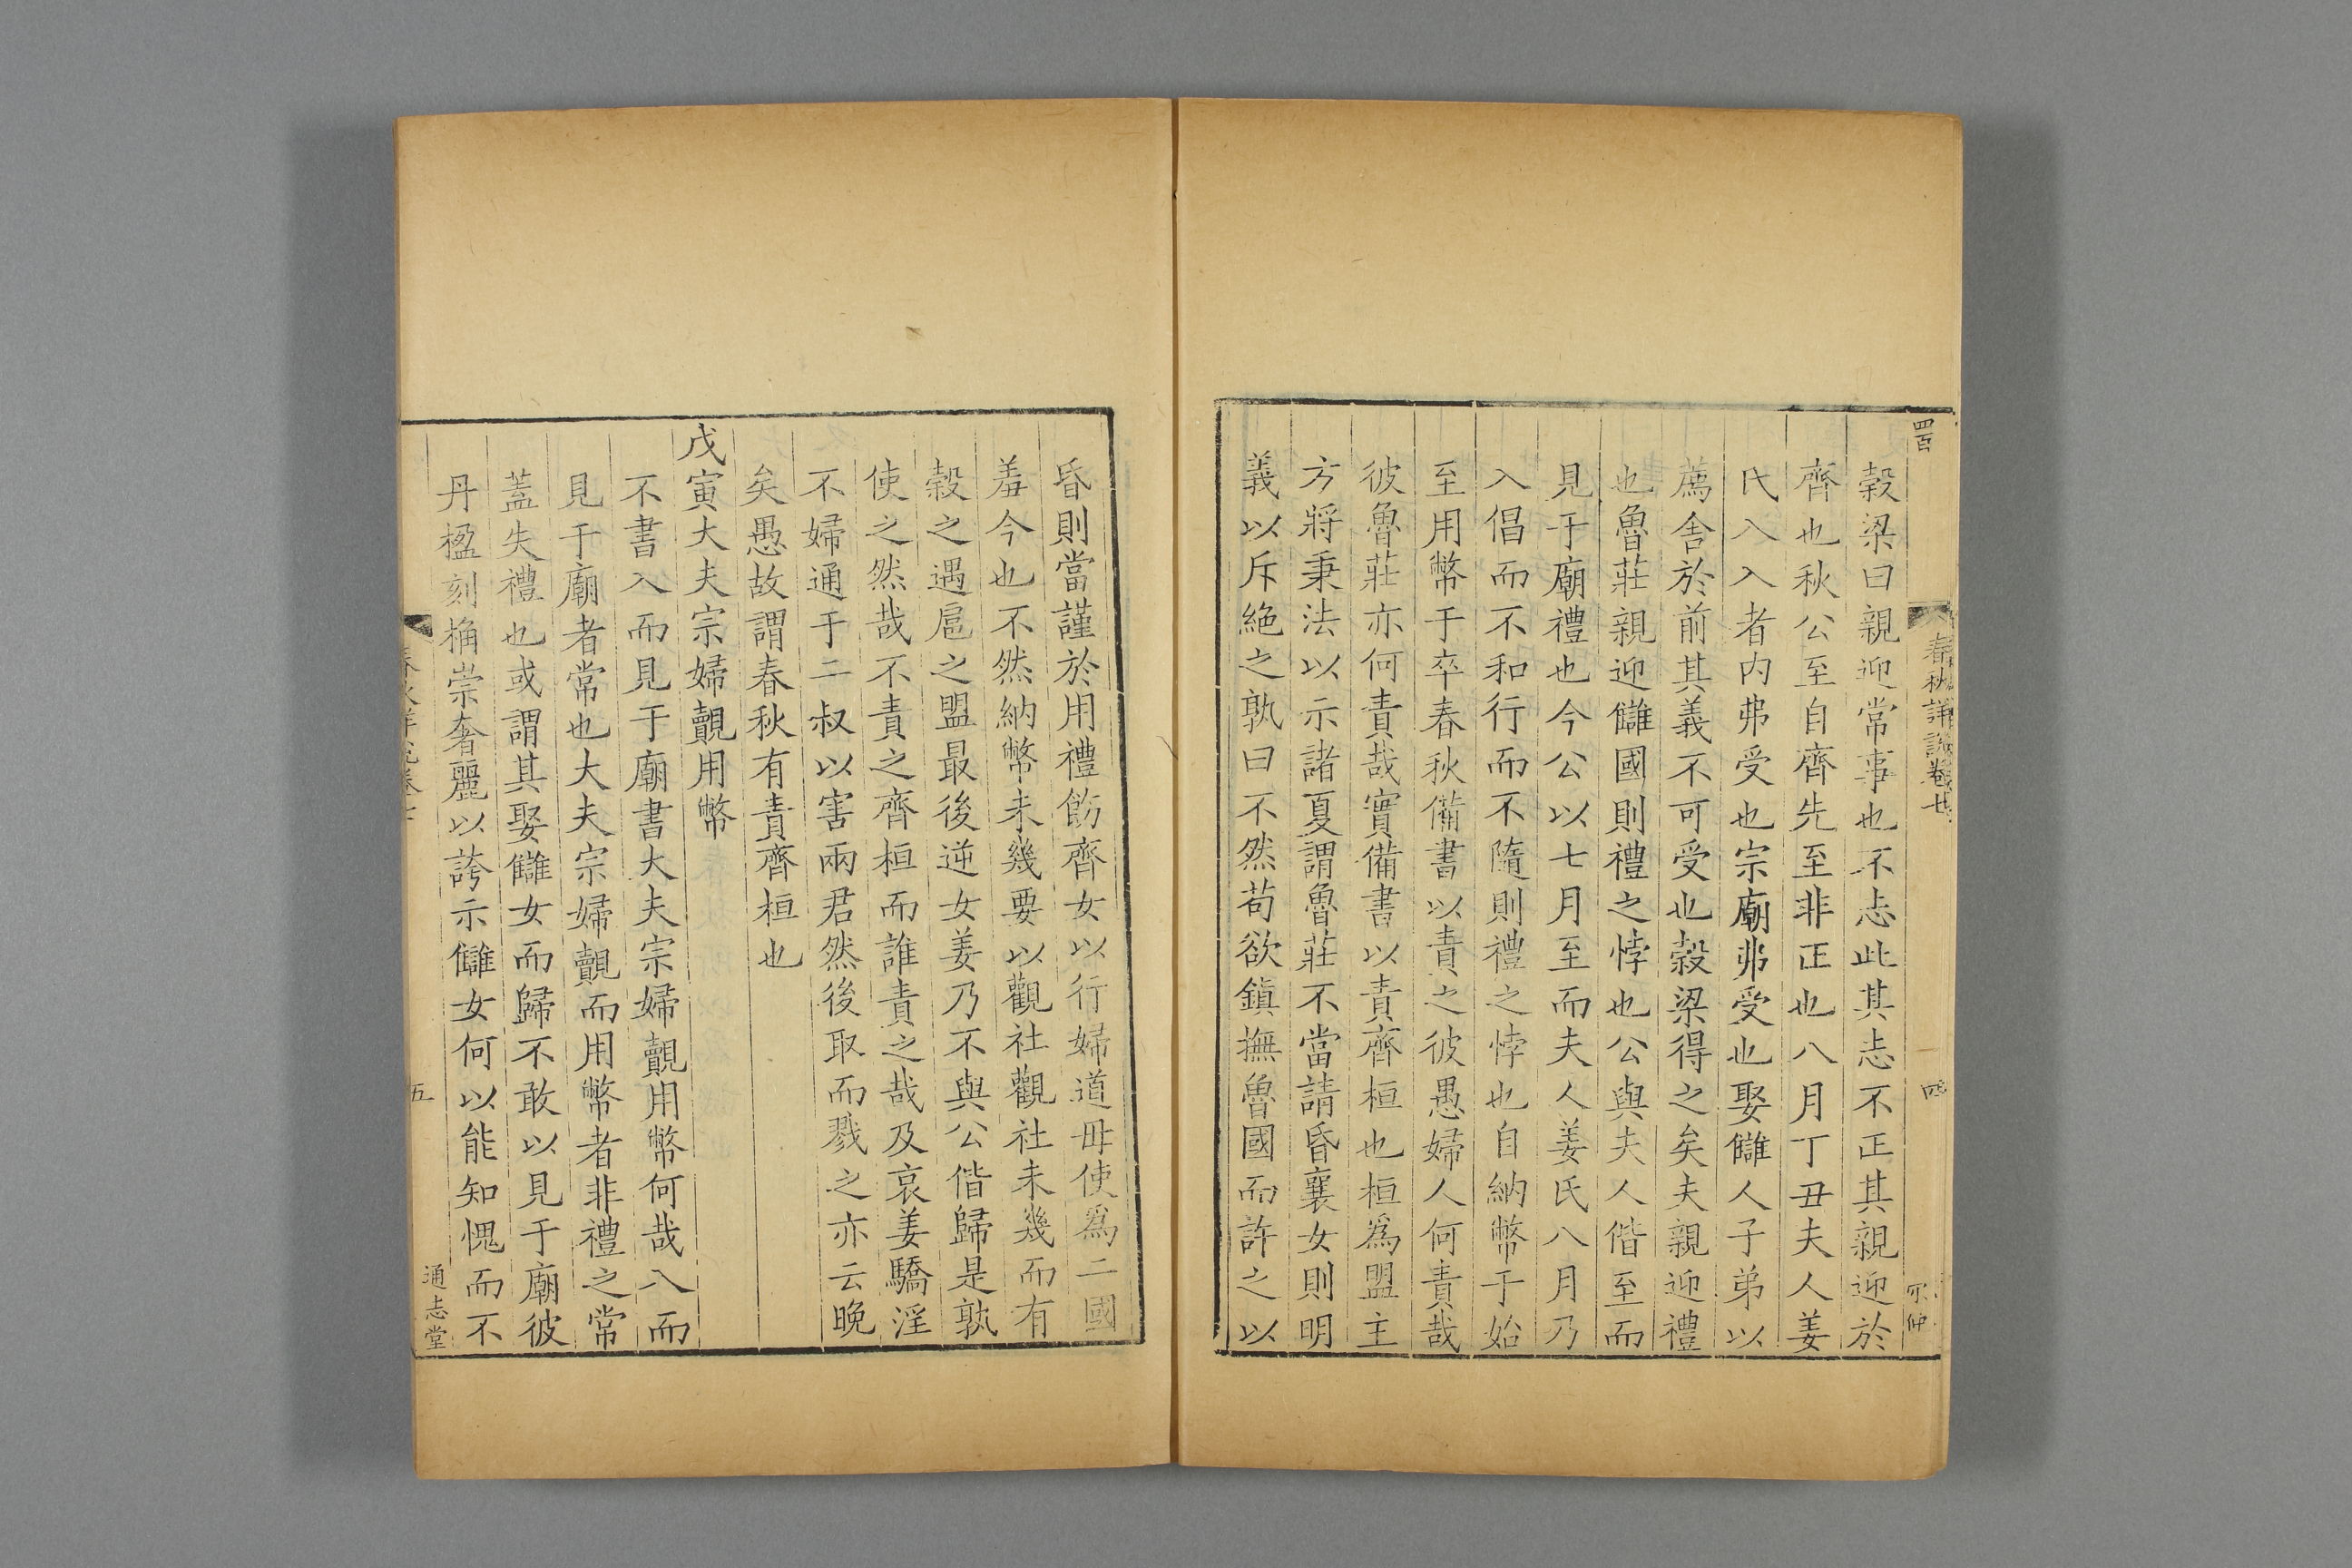 四百
春秋詳說卷廿
四
穀梁曰親迎常事也不志此其志不正其親迎於
齊也秋公至自齊先至非正也八月丁丑夫人姜
氏入入者内弗受也宗廟弗受也娶讎人子弟以
薦舍於前其義不可受也穀梁得之矣夫親迎禮
也魯莊親迎讎國則禮之悖也公與夫人偕至而
見于廟禮也今公以七月至而夫人姜氏八月乃
入倡而不和行而不隨則禮之悖也自納幣于始
至用幣于卒春秋備書以責之彼愚婦人何責哉
彼魯莊亦何責哉實備書以責齊桓也桓為盟主
方將秉法以示諸夏謂魯莊不當請昏襄女則明
義以斥絕之孰曰不然苟欲鎮撫魯國而許之以
昏則當謹於用禮飭齊女以行婦道毋使為二國
羞今也不然納幣未幾要以觀社觀社未幾而有
穀之遇扈之盟最後逆女姜乃不與公偕歸是孰
使之然哉不責之齊桓而誰責之哉及哀姜驕淫
不婦通于二叔以害兩君然後取而戮之亦云晚
矣愚故謂春秋有責齊桓也
戊寅大夫宗婦覿用幣
不書入而見于廟書大夫宗婦覿用幣何哉入而
見于廟者常也大夫宗婦覿而用幣者非禮之常
蓋失禮也或謂其娶讎女而歸不敢以見于廟彼
丹楹刻桷崇奢麗以誇示讎女何以能知愧而不
五
通志堂